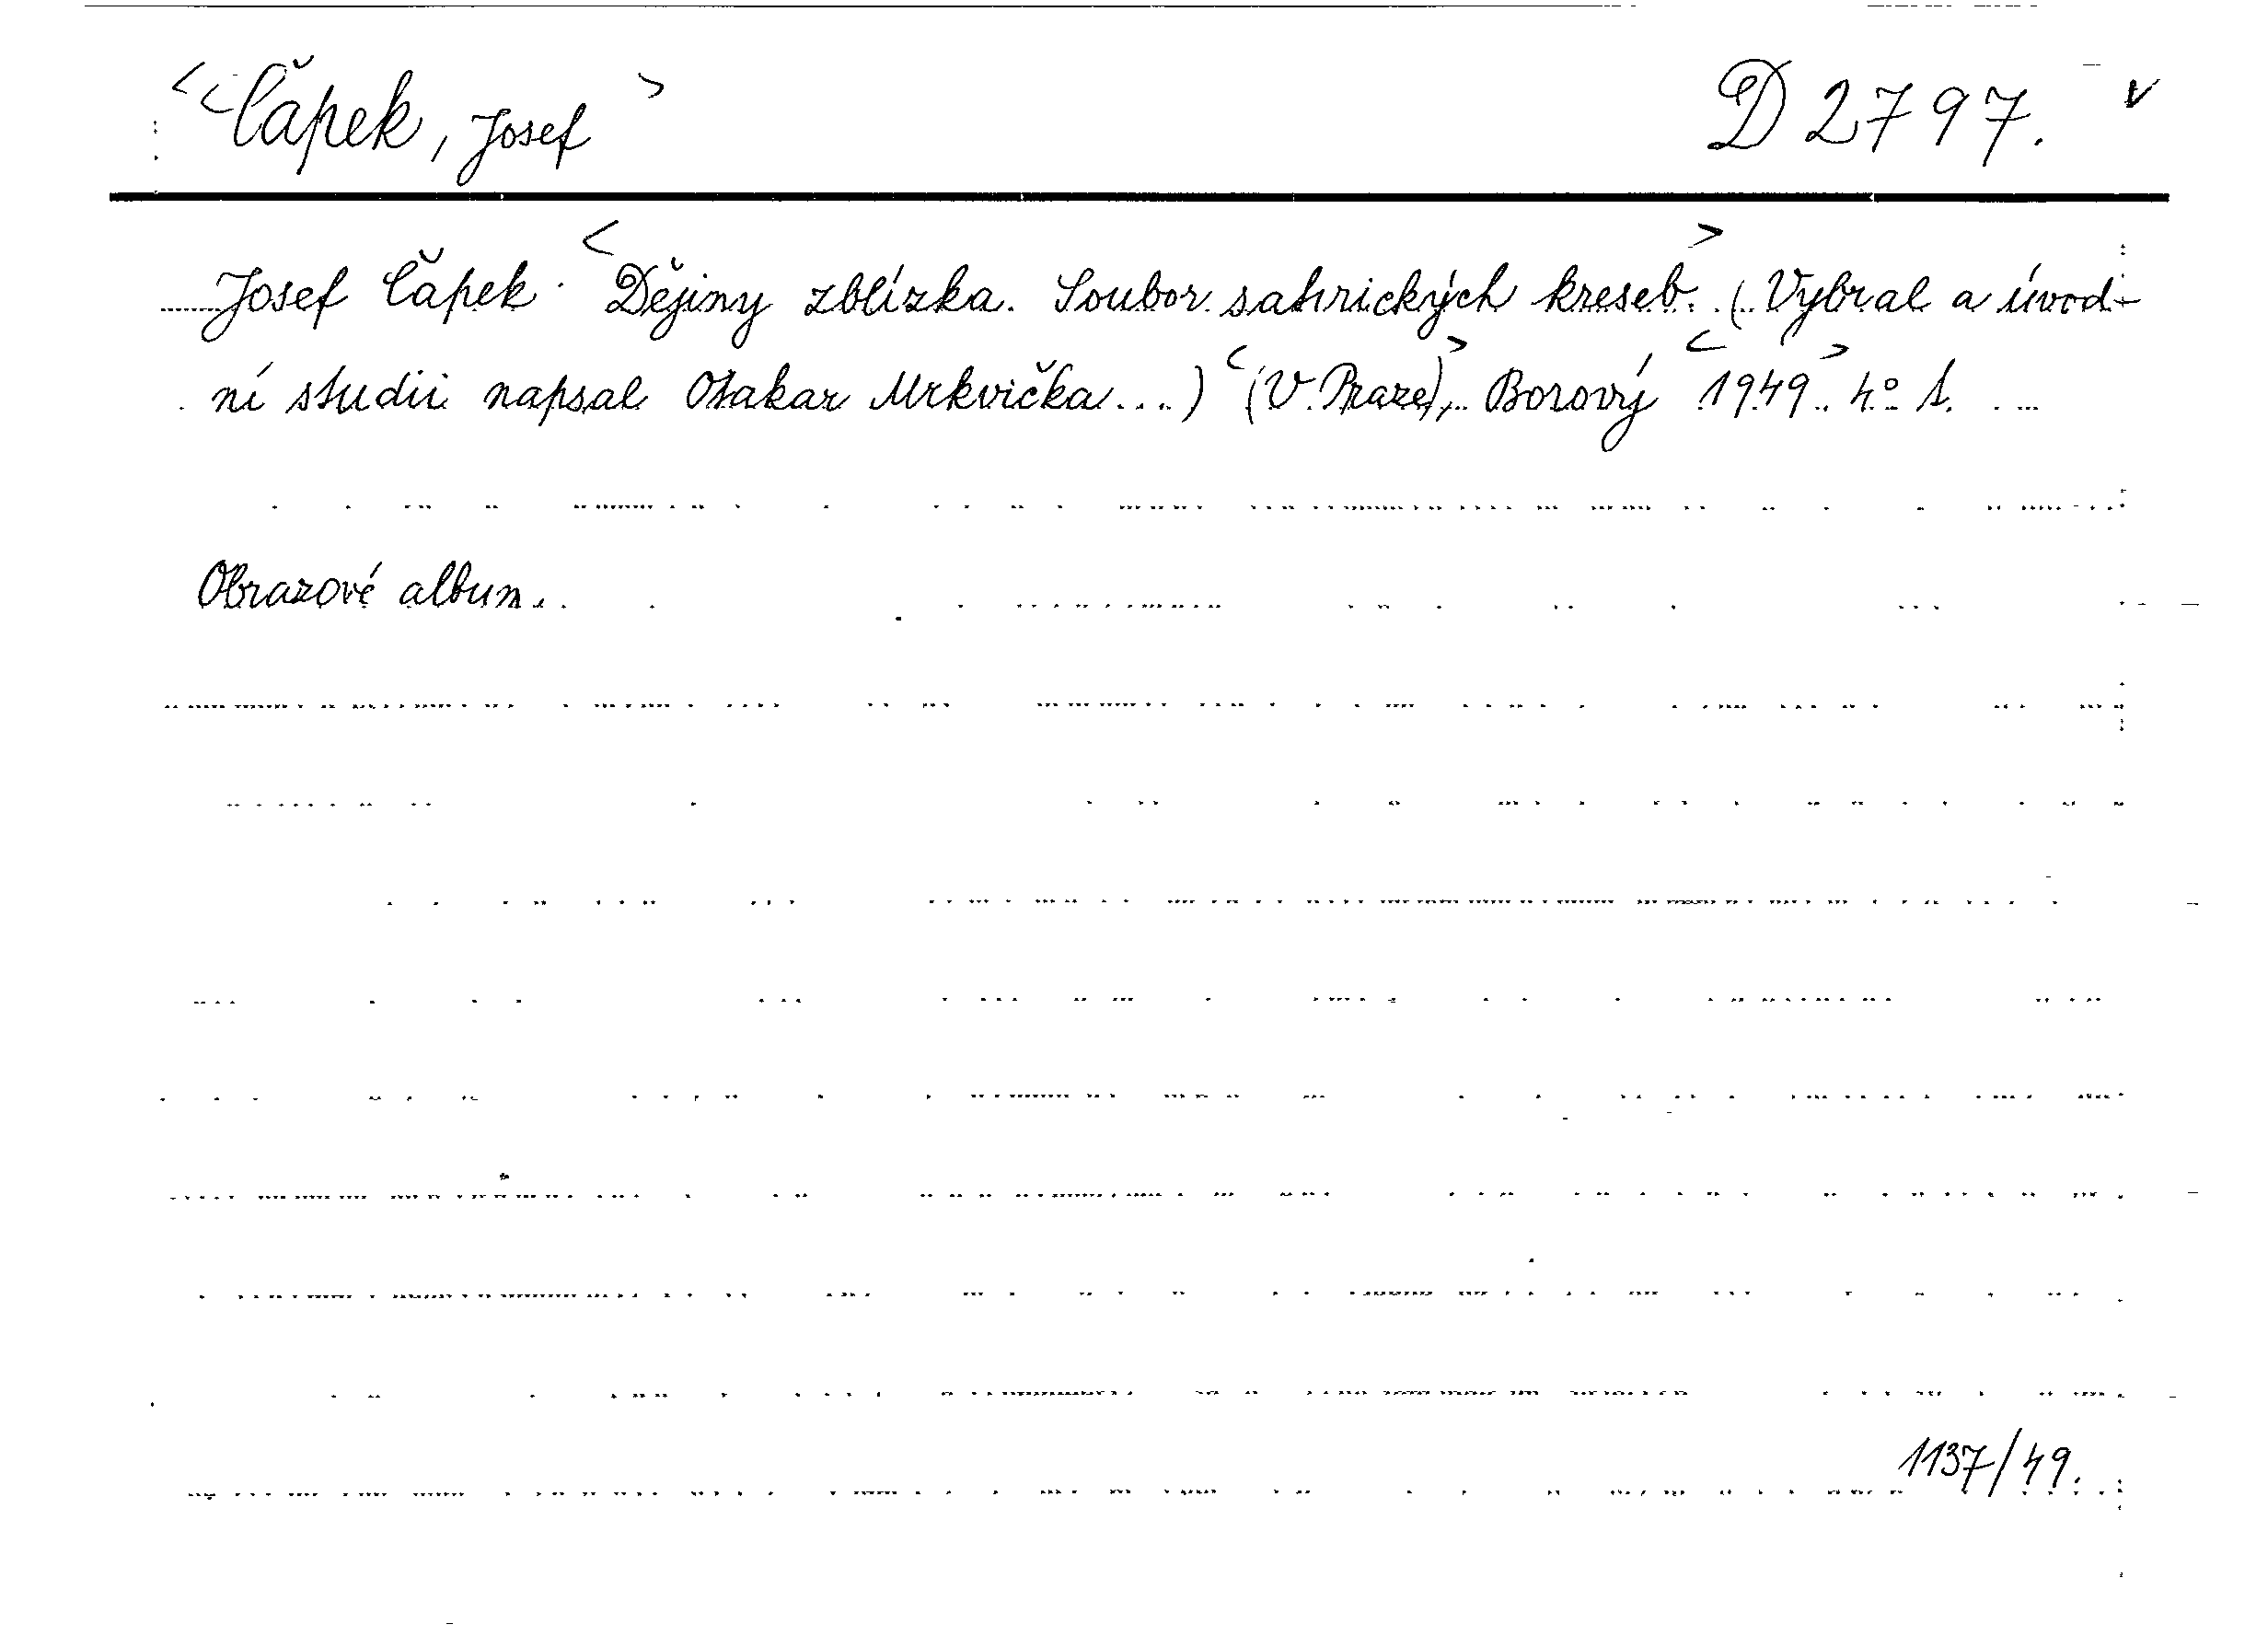 <Čapek, Josef> D 2797. v
Josef Čapek: <Dějiny zblízka. Soubor satirických kreseb.> (Vybral a úvod-
ní studii napsal Otakar Mrkvička...) <(V Praze),> Borový <1949>. 4° 1.
Obrazové album.
1137/49.